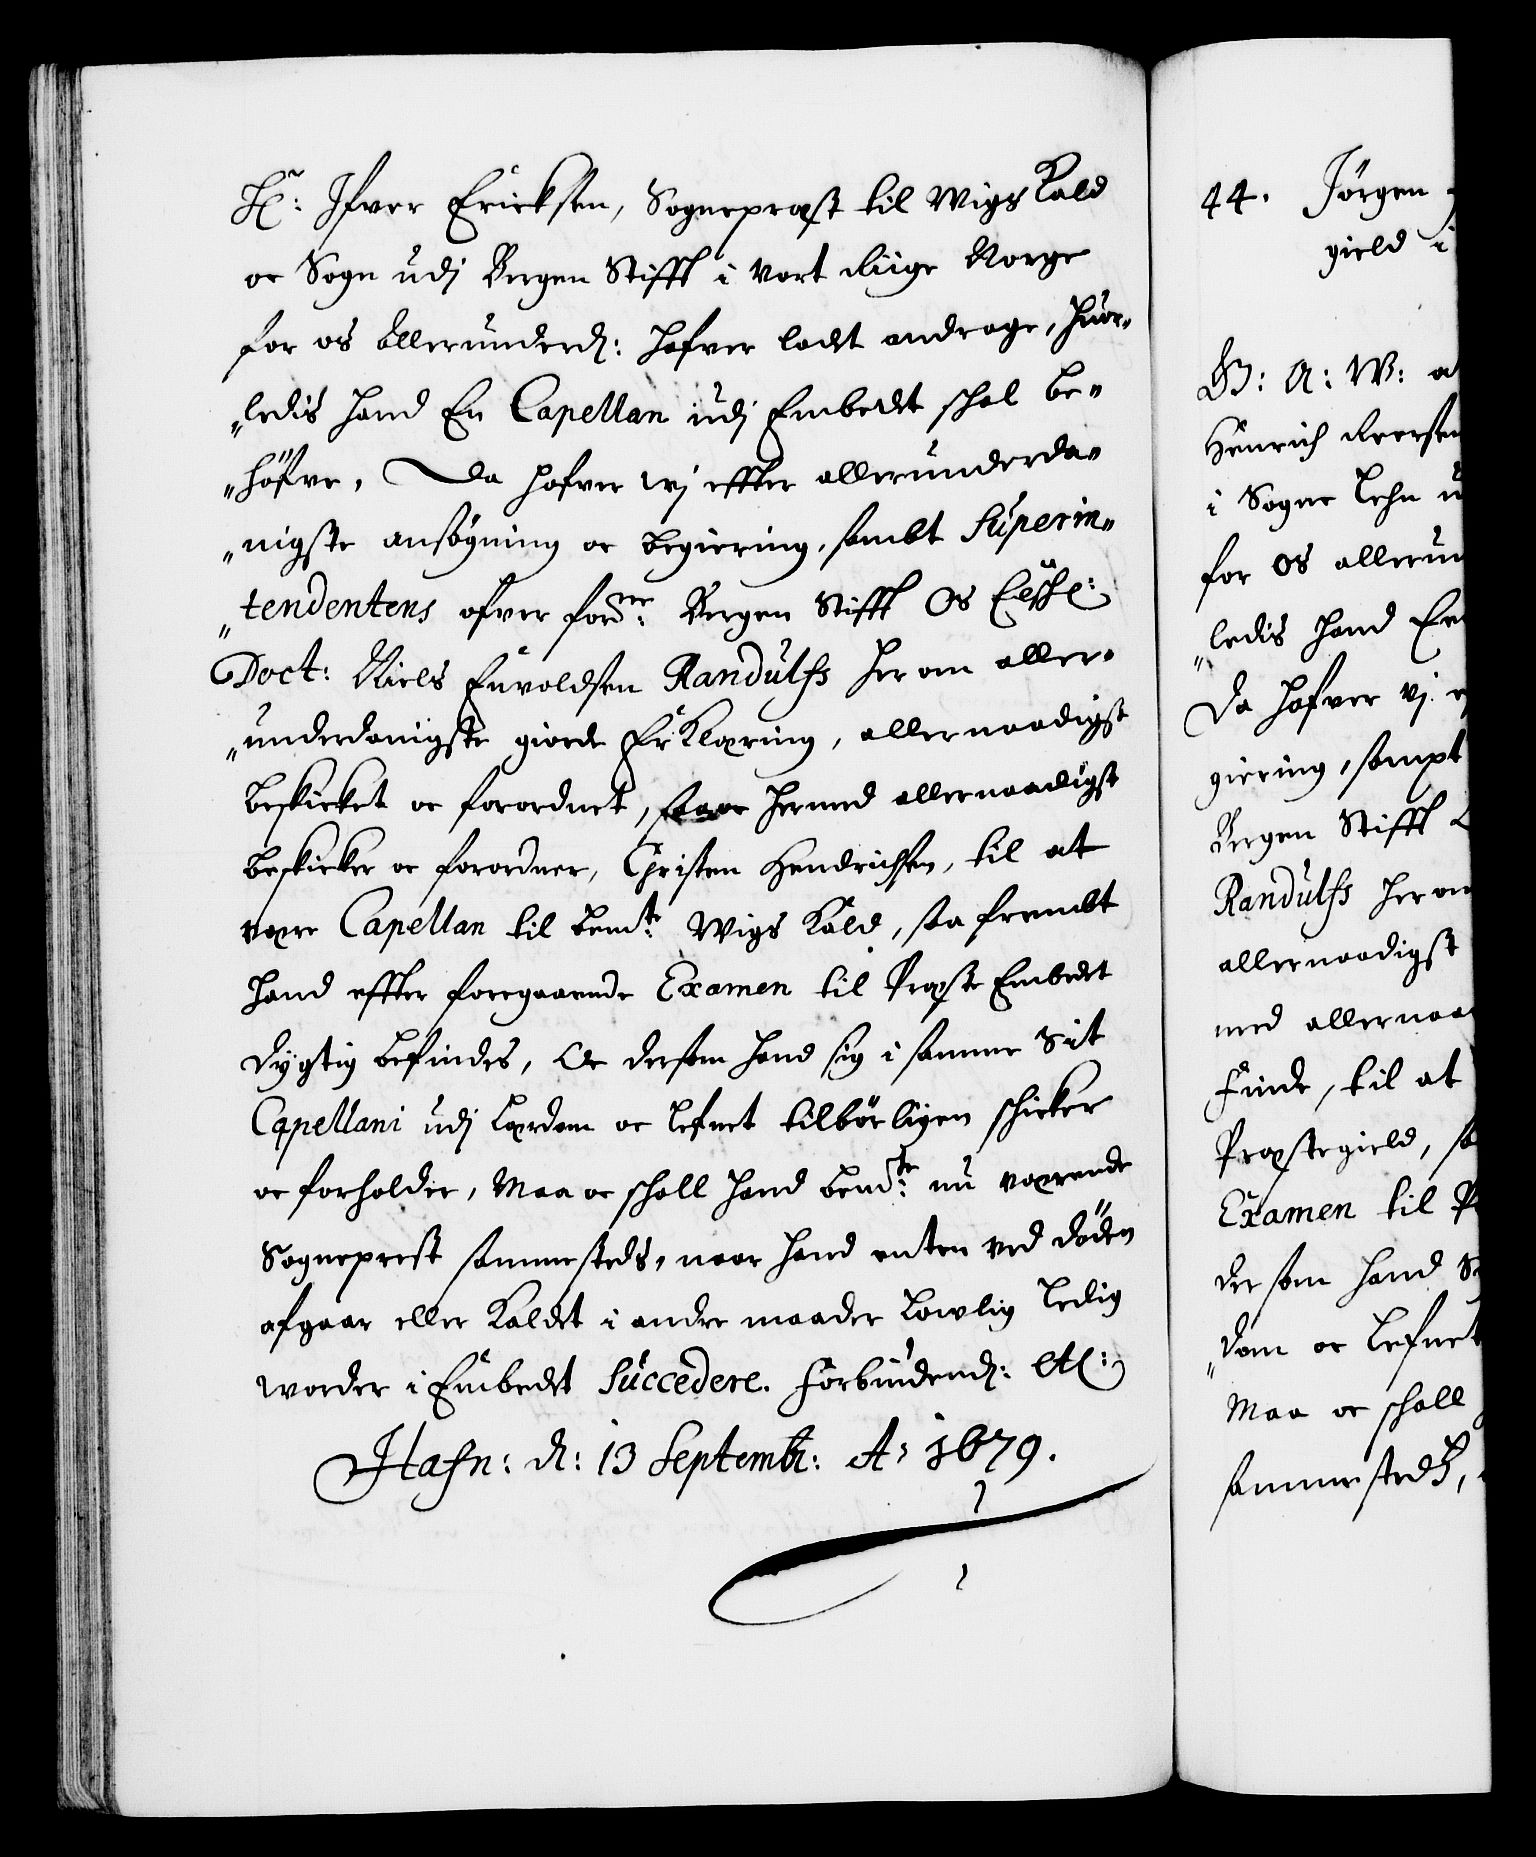 Hr: Ifver Ericksen, Sogneprest til Wigs Kald
oc Sogn udj Bergen Stifft i Vort Riige Norge
for os Allerunderd: hafver ladet andrage, huor„
„ledis hand En Capellan udj Embedet schal be„
„höfve, Da hafver wj effter allerunderda„
„nigste ansögning oc begiering, sambt Superin„
„tendentens ofver forne: Bergen Stifft Os Elschl:
Doct: Niels Envoldsen Randulfs her om aller„
„underdanigste giorde Erklæring, allernaadigst
beskicket oc forordnet, saa oc hermed allernaadigst
beskicker oc forordner, Christen Hendrichsen, til at
være Capellan til bemte: Wigs Kald, saa frembt
hand effter foregaaende Examen til Præste Embedet
dygtig befindes, Oc dersom hand sig i samme Sit
Capellani udj Lærdom oc Lefnet tilbörligen schicker
oc forholder, Maa oc schall hand bemte: nu værende
Sogneprest sammesteds, naar hand enten ved döden
afgaar eller Kaldet i andre maader Lowlig Ledig
worder i Embedet Succedere. Forbiudend: etc:
Hafn: d: 13 Septembr: A: 1679.
44. Jörgen
gield i
G: A: W: a
Henrich Iversen
i Sogne Lehn u
for Os allerun
„ledis hand En
Da hafver vj e
giering, sampt
Bergen Stifft
Randulfs her om
allernaadigst
med allernaa
Finde, til at
Præstegield, sa
Examen til P
dersom hand S
„dom oc Lefnet
Maa oc schall
sammestedts,